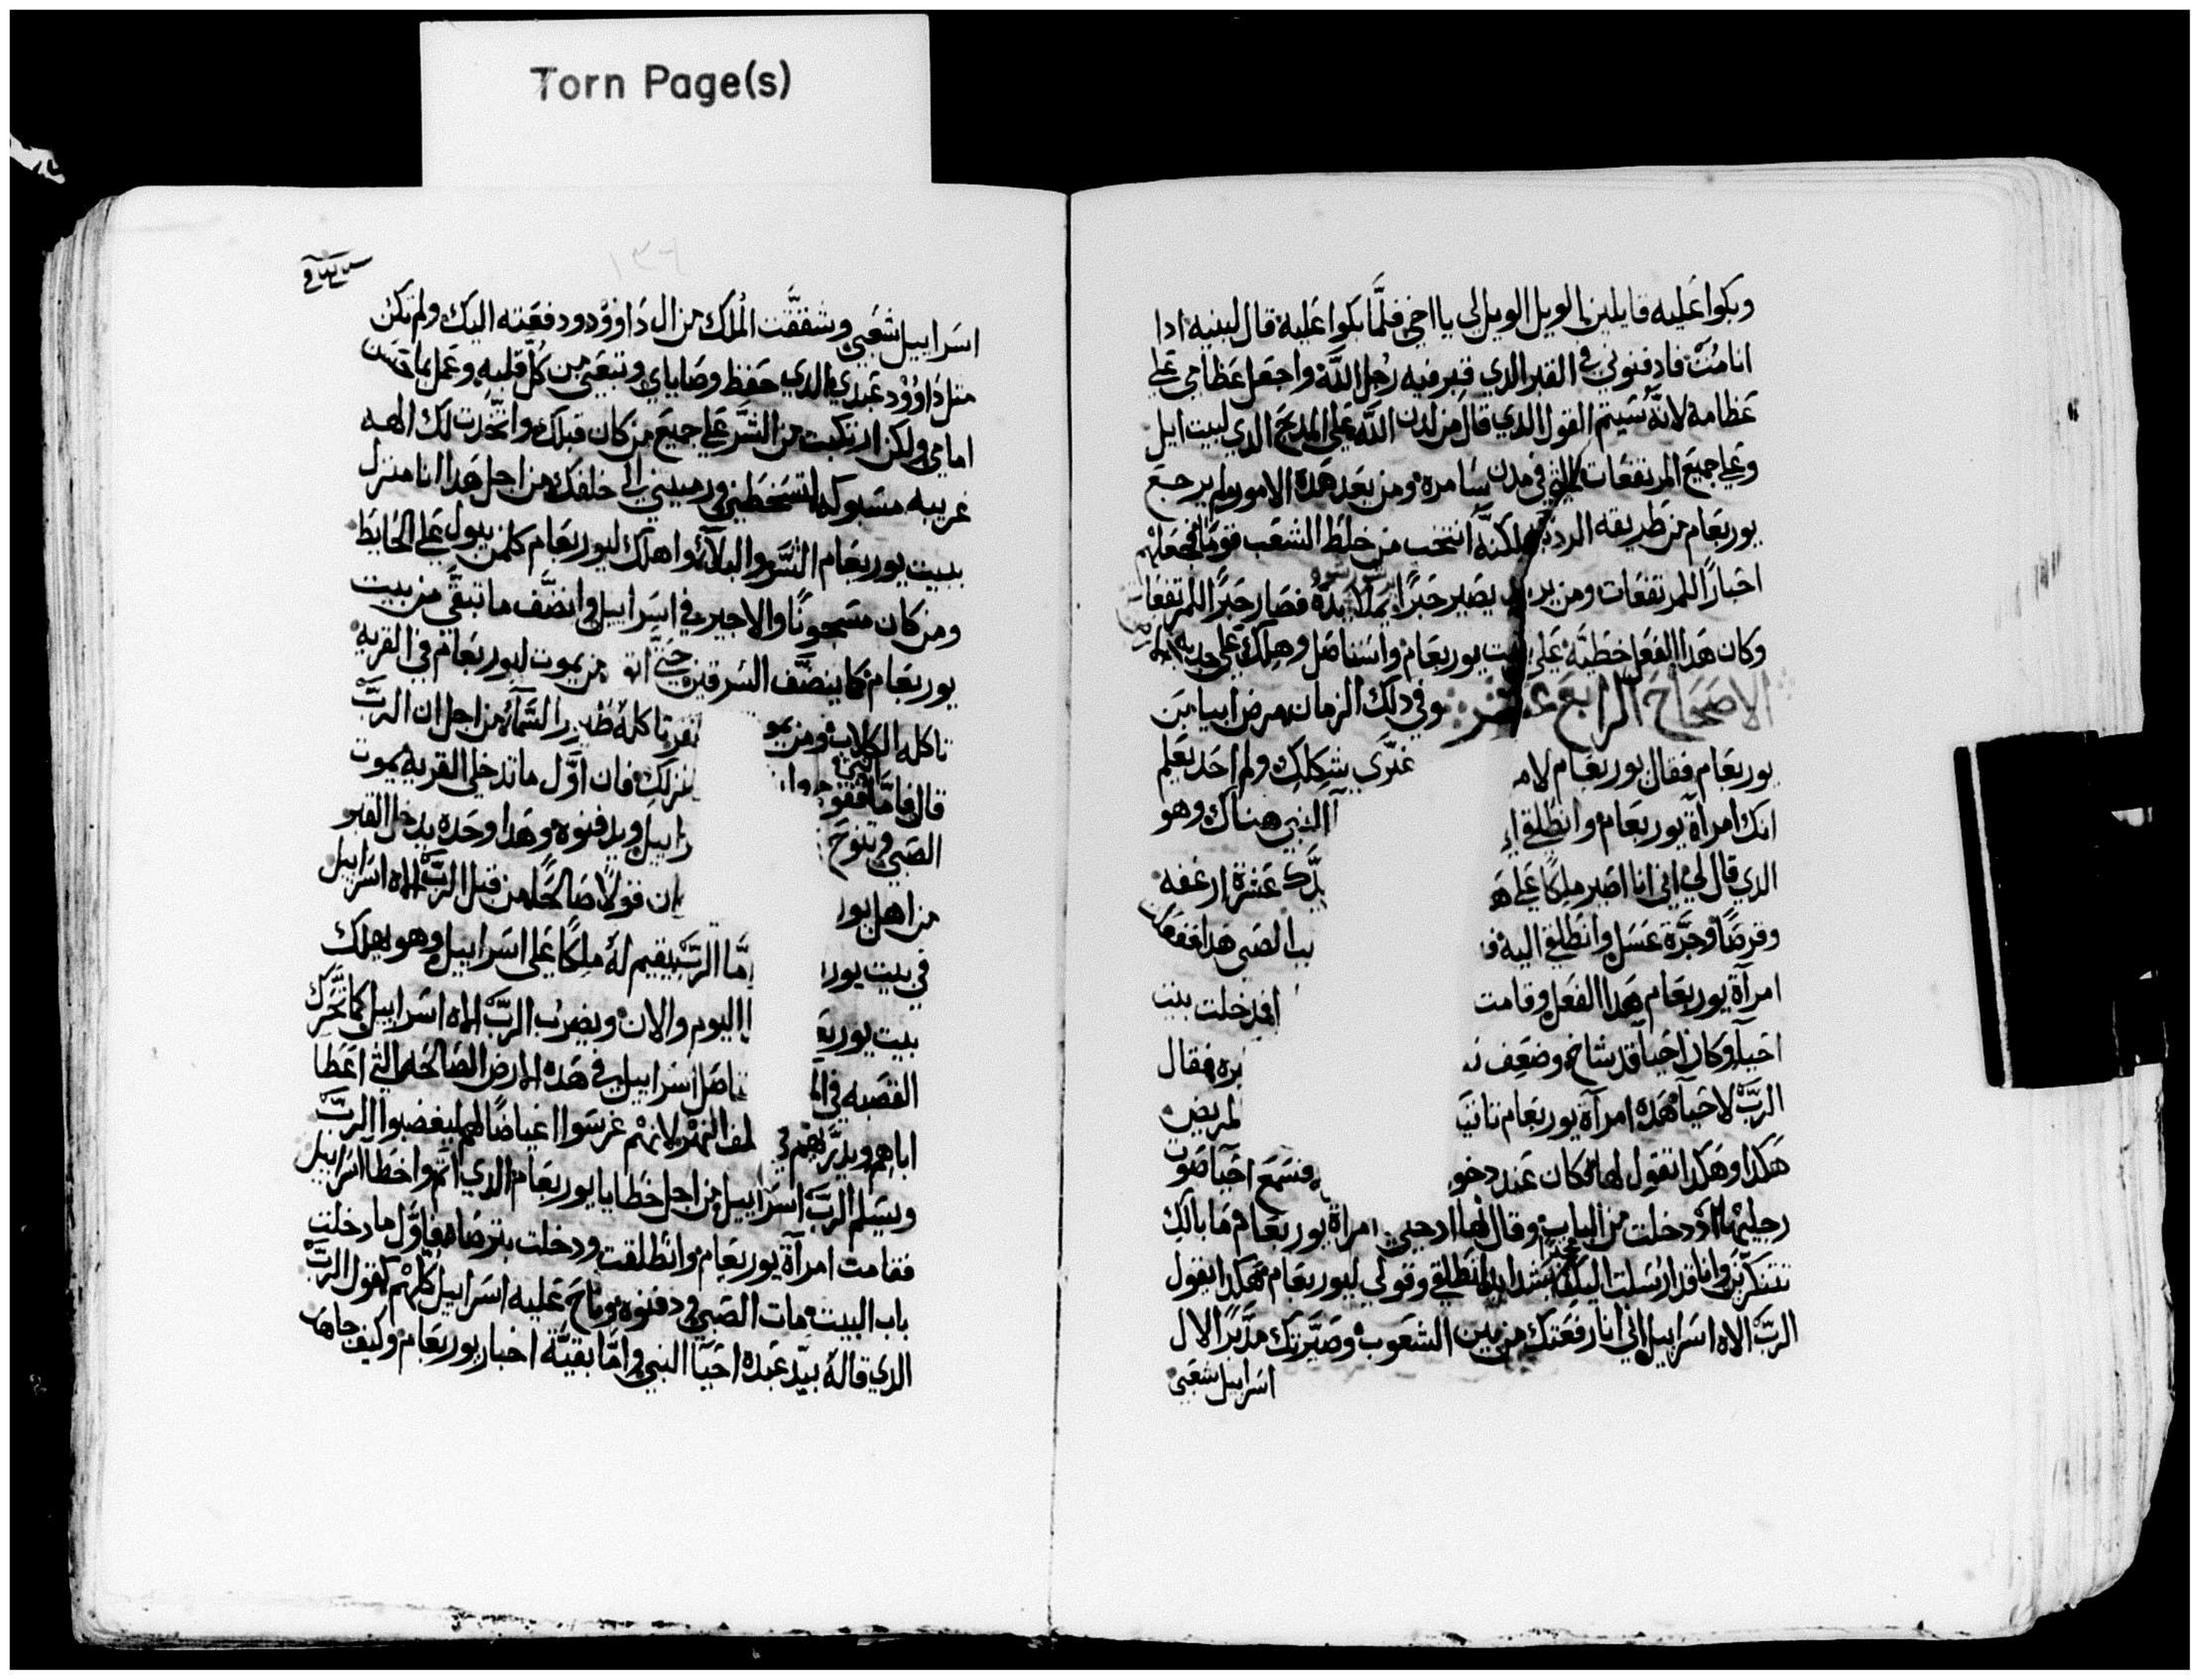 Torn Page(s)
وبكوا عليه قايلين الويل الويل لي يا اخي فلمَّا بكوا عليه قال لبنيه ادا
انا مُت فادفنوني في القبر الدي قبر فيه رجل اللَّه واجعل عظامي علي
عظامه لانَّه سَيتم القول الدي قال من لدن اللَّه علي المدبح الدي لبيت ايل
وعلي جميع المرتفعات التي في مدن سامره ومن بعد هده الامور لم يرجع
يوربعام من طريقه الرديه لكنَّه انتخب من خلط الشعب قومًا فجعلهم
احبارًا للمرتفعات ومن يريد يصير حبرًا يملا يدهُ فصار حبرًا للمرتفعات
وكان هدا الفعل خطيَّة علي بيت يوربعام واستاصل وهلك علي جديد الارض
الاصحاح الرابع عشر وفي دلك الزمان مرض ابيا بن
يوربعام فقال يوربعام لامـ غيّري شكلك ولم احد يعلم
انك امراة يوربعام وانطلقي النبي هناك وهو
الدي قال لي اني انا اصير ملكًا علي يدَّك عشرة ارغفه
وقرصًا وجرَّة عسل وانطلقي اليه الصبي هدا ففعلت
امراة يوربعام هدا الفعل وقامت فدخلت بيت
احيا وكان احيا قد شاخ وضعف فقال
الربّ لاحيا هده امراة يوربعام تاتي المريض
هكدا وهكدا تقول لها فكان عند دخو فسمع احيا صوت
رجليها اد دخلت من الباب وقال لها ادخلي امراة يوربعام ما بالك
تتنكّرين وانا قد ارسلت اليك انطلقي وقولي ليوربعام هكدا يقول
الربّ الاه اسراييل اني انا رفعتك من بين الشعوب وصيَّرتك مدَّبرًا لال
اسراييل شعبي
١٣٩
اسراييل شعبي وشققت الملك من ال داوود ودفعته اليك ولم تكن
متل داوود عبدي الدي حفظ وصاياي وتبعني من كل قلبه وعمل بما تحسن
امامي ولكن ارتكبت من الشر علي جميع من كان قبلك واتخدت لك الهه
غريبه مسبوكه لتسخطني ورميتني الي خلفك من اجل هدا انا منزل
ببيت يوربعام الشر والبلا واهلك ليوربعام كلمن يبول علي الحايط
ومن كان مسجونًا والاخير في اسراييل وانضف ما تبقَّي من بيت
يوربعام كما ينضَّف السرقين حتَّي من يموت ليوربعام في القريه
تاكله الكلاب ومن تاكله طير السما من اجل ان الربّ
قال فامَّا فقوم منزلك فان اوَّل ما تدخلي القريه يموت
الصبي وتنوح ويدفنوه وهدا وحده يدخل القبر
من اهل يور قولًا صالحًا من قبل الربّ الاه اسراييل
في بيت يور الربّ يقيم لهُ ملكًا علي اسراييل وهو يهلك
بيت يوربعـ اليوم والان ويضرب الربّ الاه اسراييل كما تتحرَّك
القصبه في اسراييل في هده الارض الصالحه التي اعطا
اباهم ويدَّريهم النهر لانهم غرسوا غياضًا لهم ليغضبوا الربّ
ويسلم الربّ اسراييل من اجل خطايا يوربعام الدي اتم واخطا اسراييل
فقامت امراة يوربعام وانطلقت ودخلت بترصا فاوَّل ما دخلت
باب البيت مات الصبي ودفنوه وناح عليه اسراييل كلَّهم كقول الربّ
الدي قالهُ بيد عبده احيا النبي وامَّا بقيَّة اخبار يوربعام وكيف جاهد